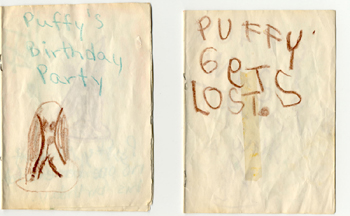 Puffy's
birthday
Party
PUFFY
GETS
LOST.